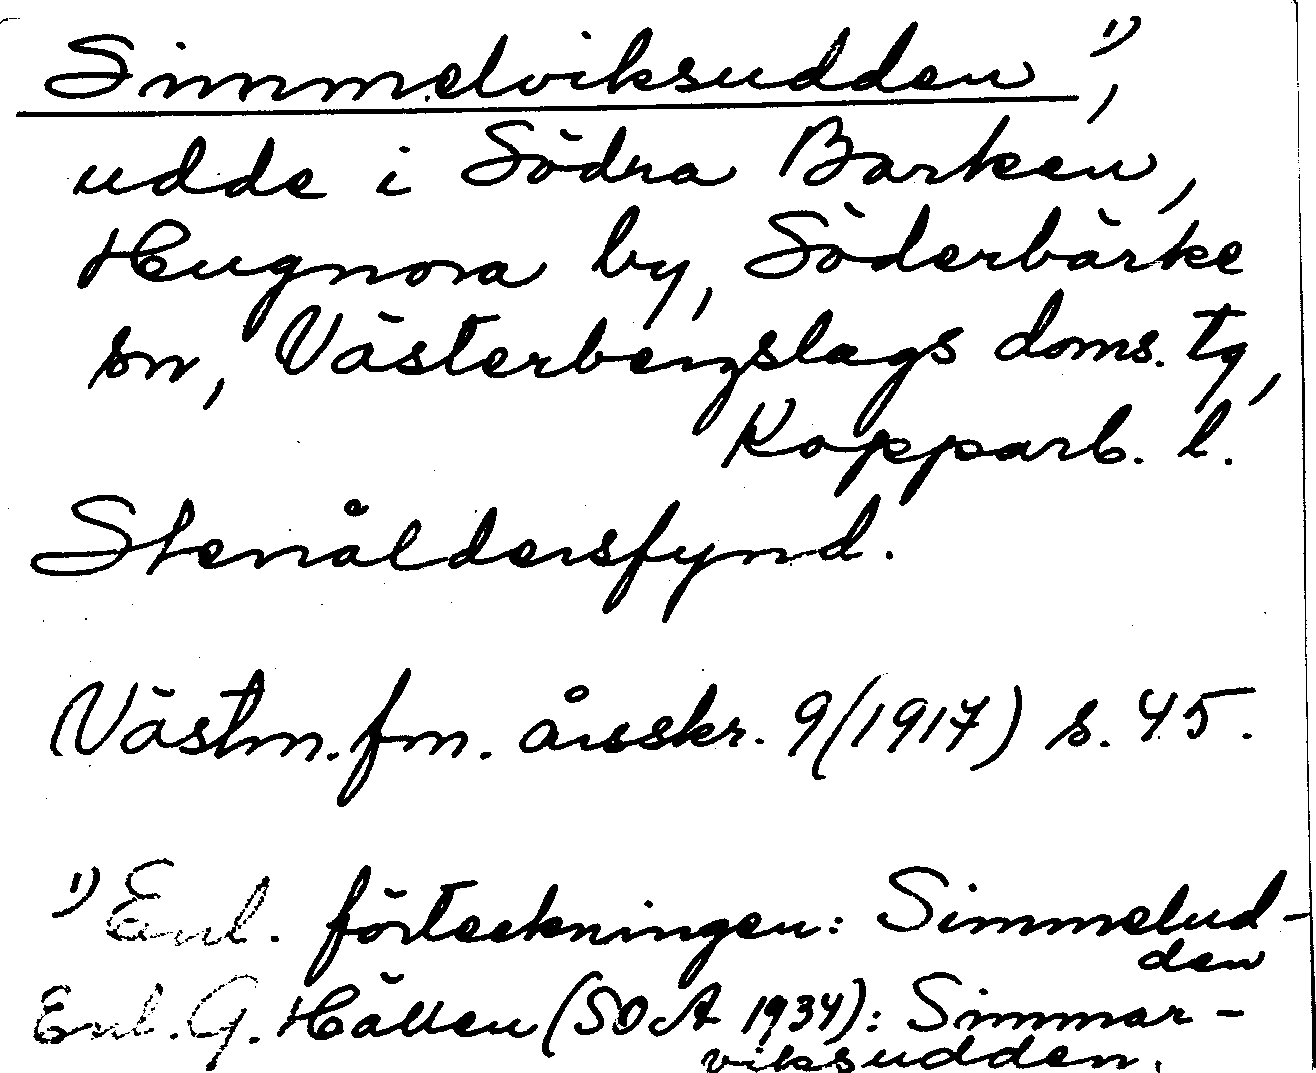 Simmelviksudden 1),
udde i Södra Barken,
Hugnora by, Söderbärke
sn, Västerbergslags doms. tg,
Kopparb. l.
Stenåldersfynd.
Västm. fm. årsskr. 9/1917) s. 45.
1) Enl. förteckningen: Simmelud-
den
Enl. G. Hållen (SOA 1934): Simmar-
viksudden.